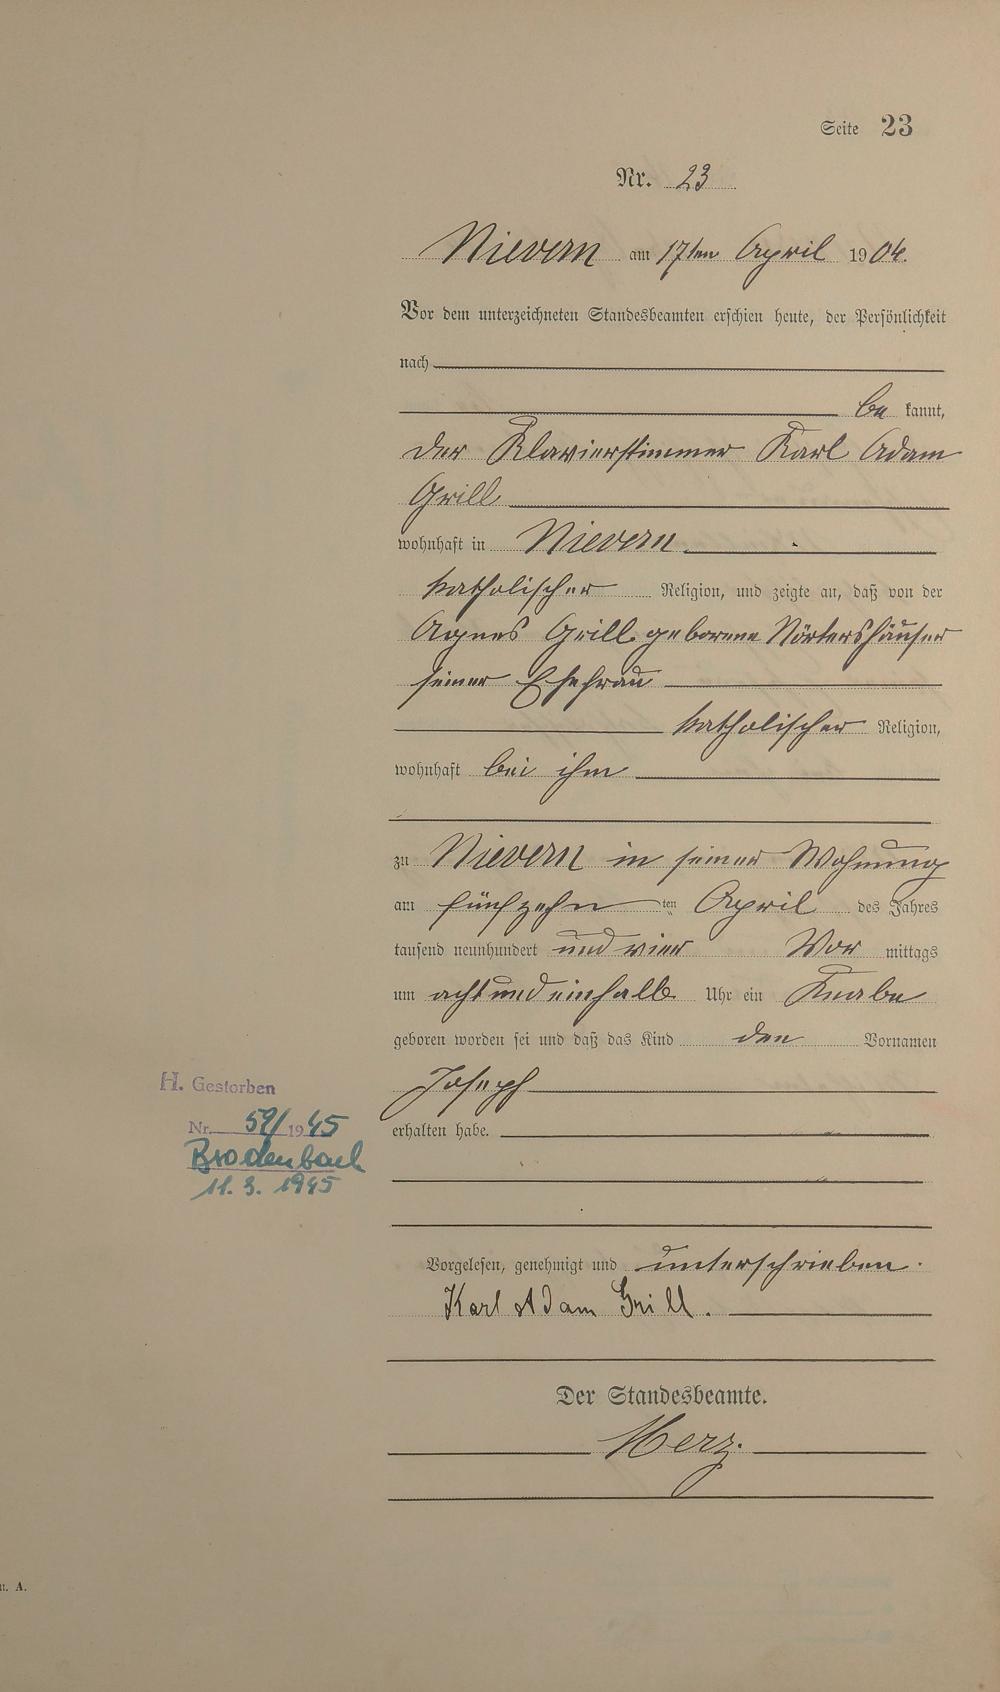 Seite 23
Nr. 23
Nievern am 17ten April 1904.
Vor dem unterzeichneten Standesbeamten erschien heute, der Persönlichkeit
nach
be kannt,
der Klavierstimmer Karl Adam
Grill
wohnhaft in Nievern.
katholischer Religion, und zeigte an, daß von der
Agnes Grill geborene Nörtershäuser
seiner Ehefrau
katholischer Religion,
wohnhaft bei ihm
zu Nievern in seiner Wohnung
am fünfzehn ten April des Jahres
tausend neunhundert und vier Vor mittags
um acht und einhalb Uhr ein Knabe
geboren worden sei und daß das Kind den Vornamen
Joseph
erhalten habe.
H. Gestorben
Nr. 59/1945
Brodenbach
11. 3. 1945
Vorgelesen, genehmigt und unterschrieben.
Karl Adam Grill.
Der Standesbeamte.
Merz.
u. A.